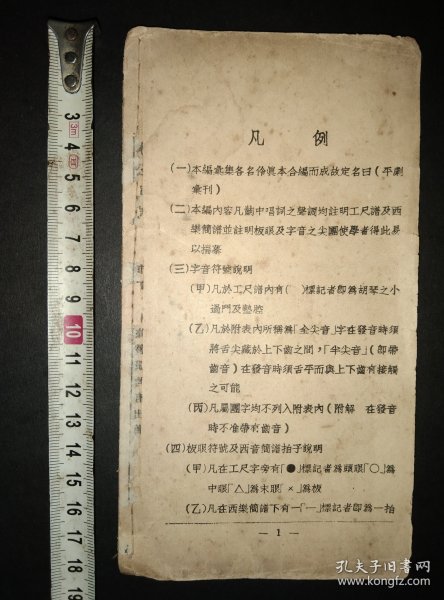 凡　例
(一)本編彙集各名伶眞本合編而成故定名曰(平劇
彙刊)
(二)本編內容凡戲中唱詞之聲調均註明工尺譜及西
樂簡譜並註明板眼及字音之尖團使學者得此易
以揣摹
(三)字音符號說明
(甲)凡於工尺譜內有(　)標記者即爲胡琴之小
過門及墊腔
(乙)凡於附表內所稱爲「全尖音」字在發音時須
將舌尖藏於上下齒之間,「半尖音」(即帶
齒音)在發音時須舌平而與上下齒有接觸
之可能
(丙)凡屬團字均不列入附表內(附解　在發音
時不准帶有齒音)
(四)板眼符號及西音簡譜拍子說明
(甲)凡在工尺字旁有「●」標記者爲頭眼「○」爲
中眼「△」爲末眼「×」爲板
(乙)凡在西樂簡譜下有一「—」標記者即爲一拍
— 1 —
3
3m
4
5
6
7
8
9
10
11
12
13
14
15
16
17
18
19
孔夫子旧书网
www.kongfz.com